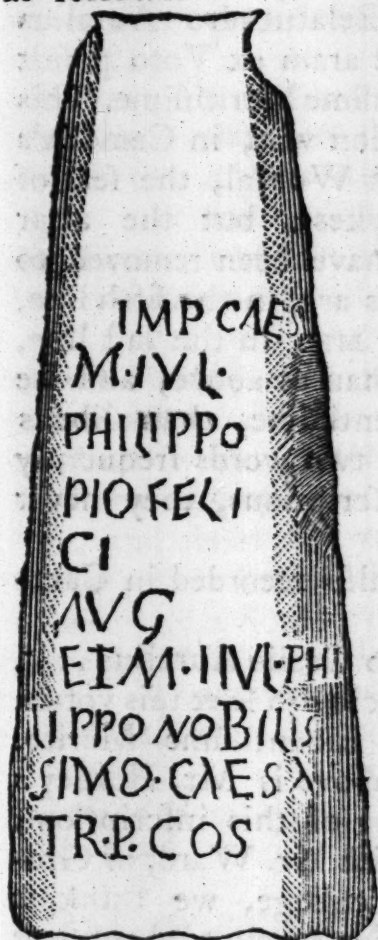 IMP CAES
M·IVL·
PHILIPPO
PIO FELI
CI
AVG
ET M·IIVL·PHI
LIPPO NOBILIS
SIMO·CAESA
TR·P·COS